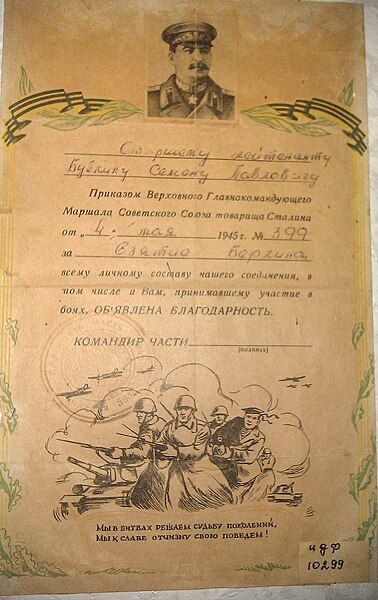 Старшему лейтенанту
Бубкину Семену Павловичу
Приказом Верховного Главнокомандующего
Маршала Советского Союза товарища Сталина
от „4 " мая 1945 г. № 399
за Взятие Берлина
всему личному составу нашего соединения, в
том числе и Вам, принимавшему участие в
боях, ОБ'ЯВЛЕНА БЛАГОДАРНОСТЬ.
КОМАНДИР ЧАСТИ
(подпись)
МЫ В БИТВАХ РЕШАЕМ СУДЬБУ ПОКОЛЕНИЙ,
МЫ К СЛАВЕ ОТЧИЗНУ СВОЮ ПОВЕДЕМ!
идф
10299